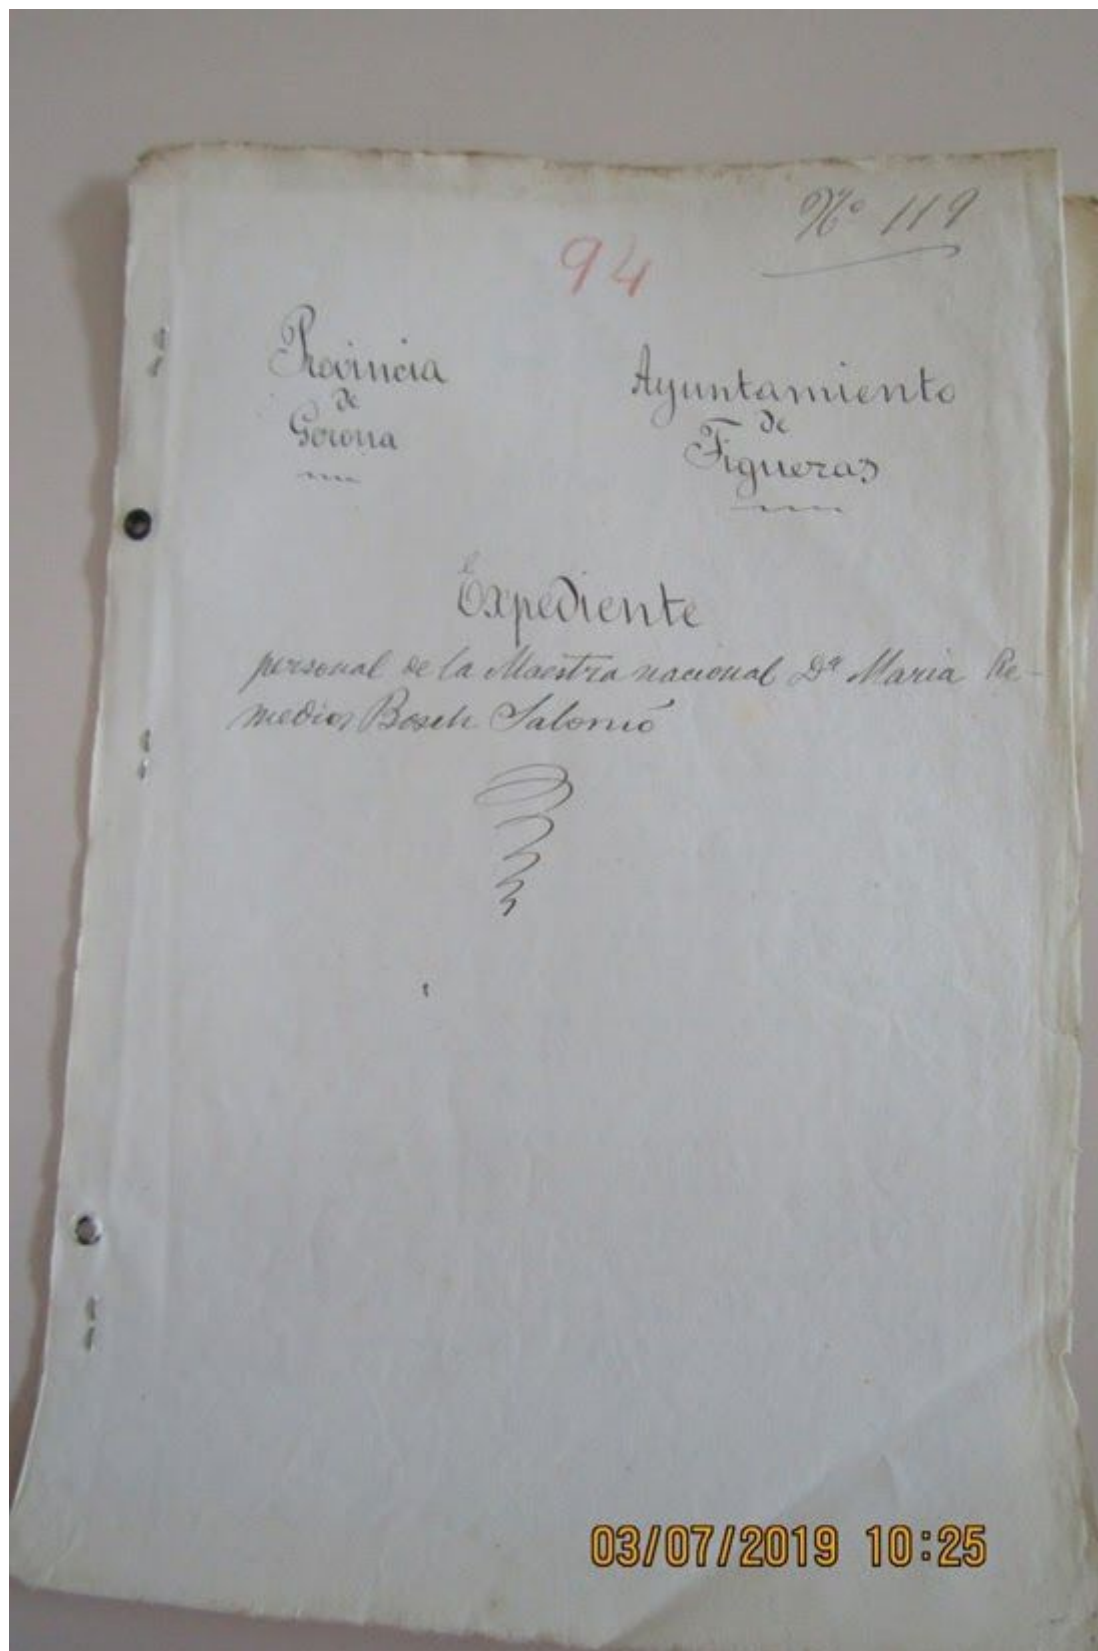 Nº 119
94
Provincia
de
Gerona
Ayuntamiento
de
Figueras
Expediente
personal de la Maestra nacional Dª Maria Re-
medios Bosch Salomó
03/07/2019 10:25